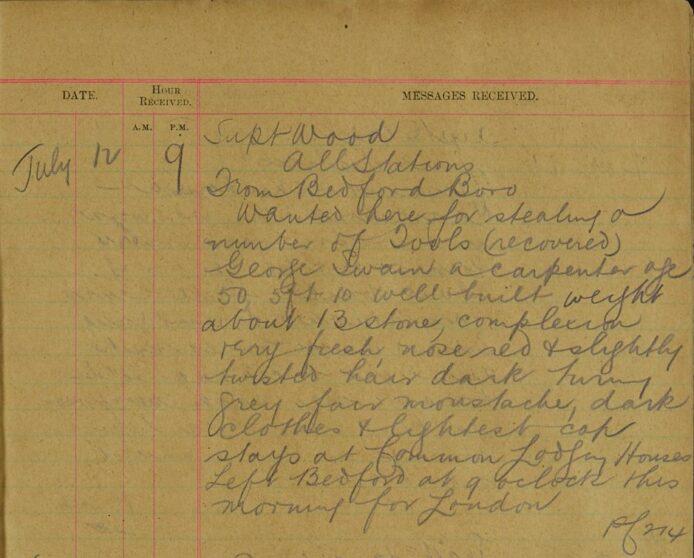 DATE. HOUR RECEIVED. MESSAGES RECEIVED.
A.M. P.M.
July 12 9 Supt Wood
All Stations
From Bedford Boro
Wanted here for stealing a
number of Tools (recovered)
George Swain a carpenter age
50, 5ft 10 well built weight
about 13 stone, complexion
very fresh nose red & slightly
twisted hair dark turning
grey fair moustache, dark
clothes & light cap
stays at Common Lodging Houses
Left Bedford at 9 oclock this
morning for London